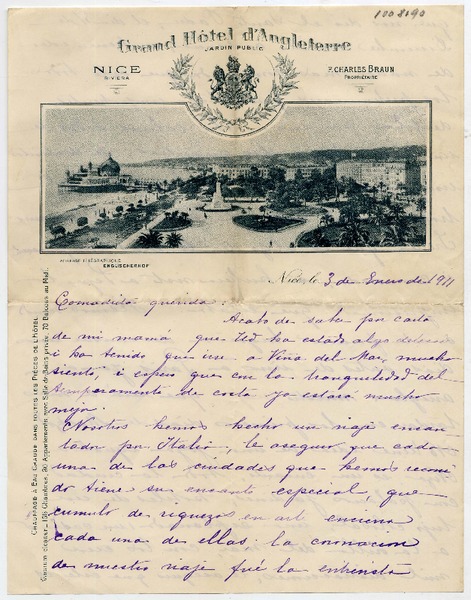 1008290
Grand Hôtel d'Angleterre
JARDIN PUBLIC
NICE
RIVIERA
F. CHARLES BRAUN
PROPRIÉTAIRE
ADRESSE TÉLÉGRAPHIQUE
ENGLISCHERHOF
CHAUFFAGE À EAU CHAUDE DANS TOUTES LES PIÈCES DE L'HÔTEL.
150 Chambres, 30 Appartements avec Salle de Bains privée. 70 Balcons au Midi.
Nice, le 3 de Enero de 1911
Comadrita querida:
Acabo de saber por carta
de mi mamá que Ud ha estado algo delicada
i ha tenido que irse a Viña del Mar, mucho
siento, i espero que con la tranquilidad del
temperamento de costa ya estará mucho
mejor.
Nosotros hemos hecho un viaje encan-
tador por Italia, le aseguro que cada
una de las ciudades que hemos recorri
do tiene su encanto especial, que
cumulo de riquezas en art encierra
cada una de ellas; la coronacion
de nuestro viaje fué la entrevista